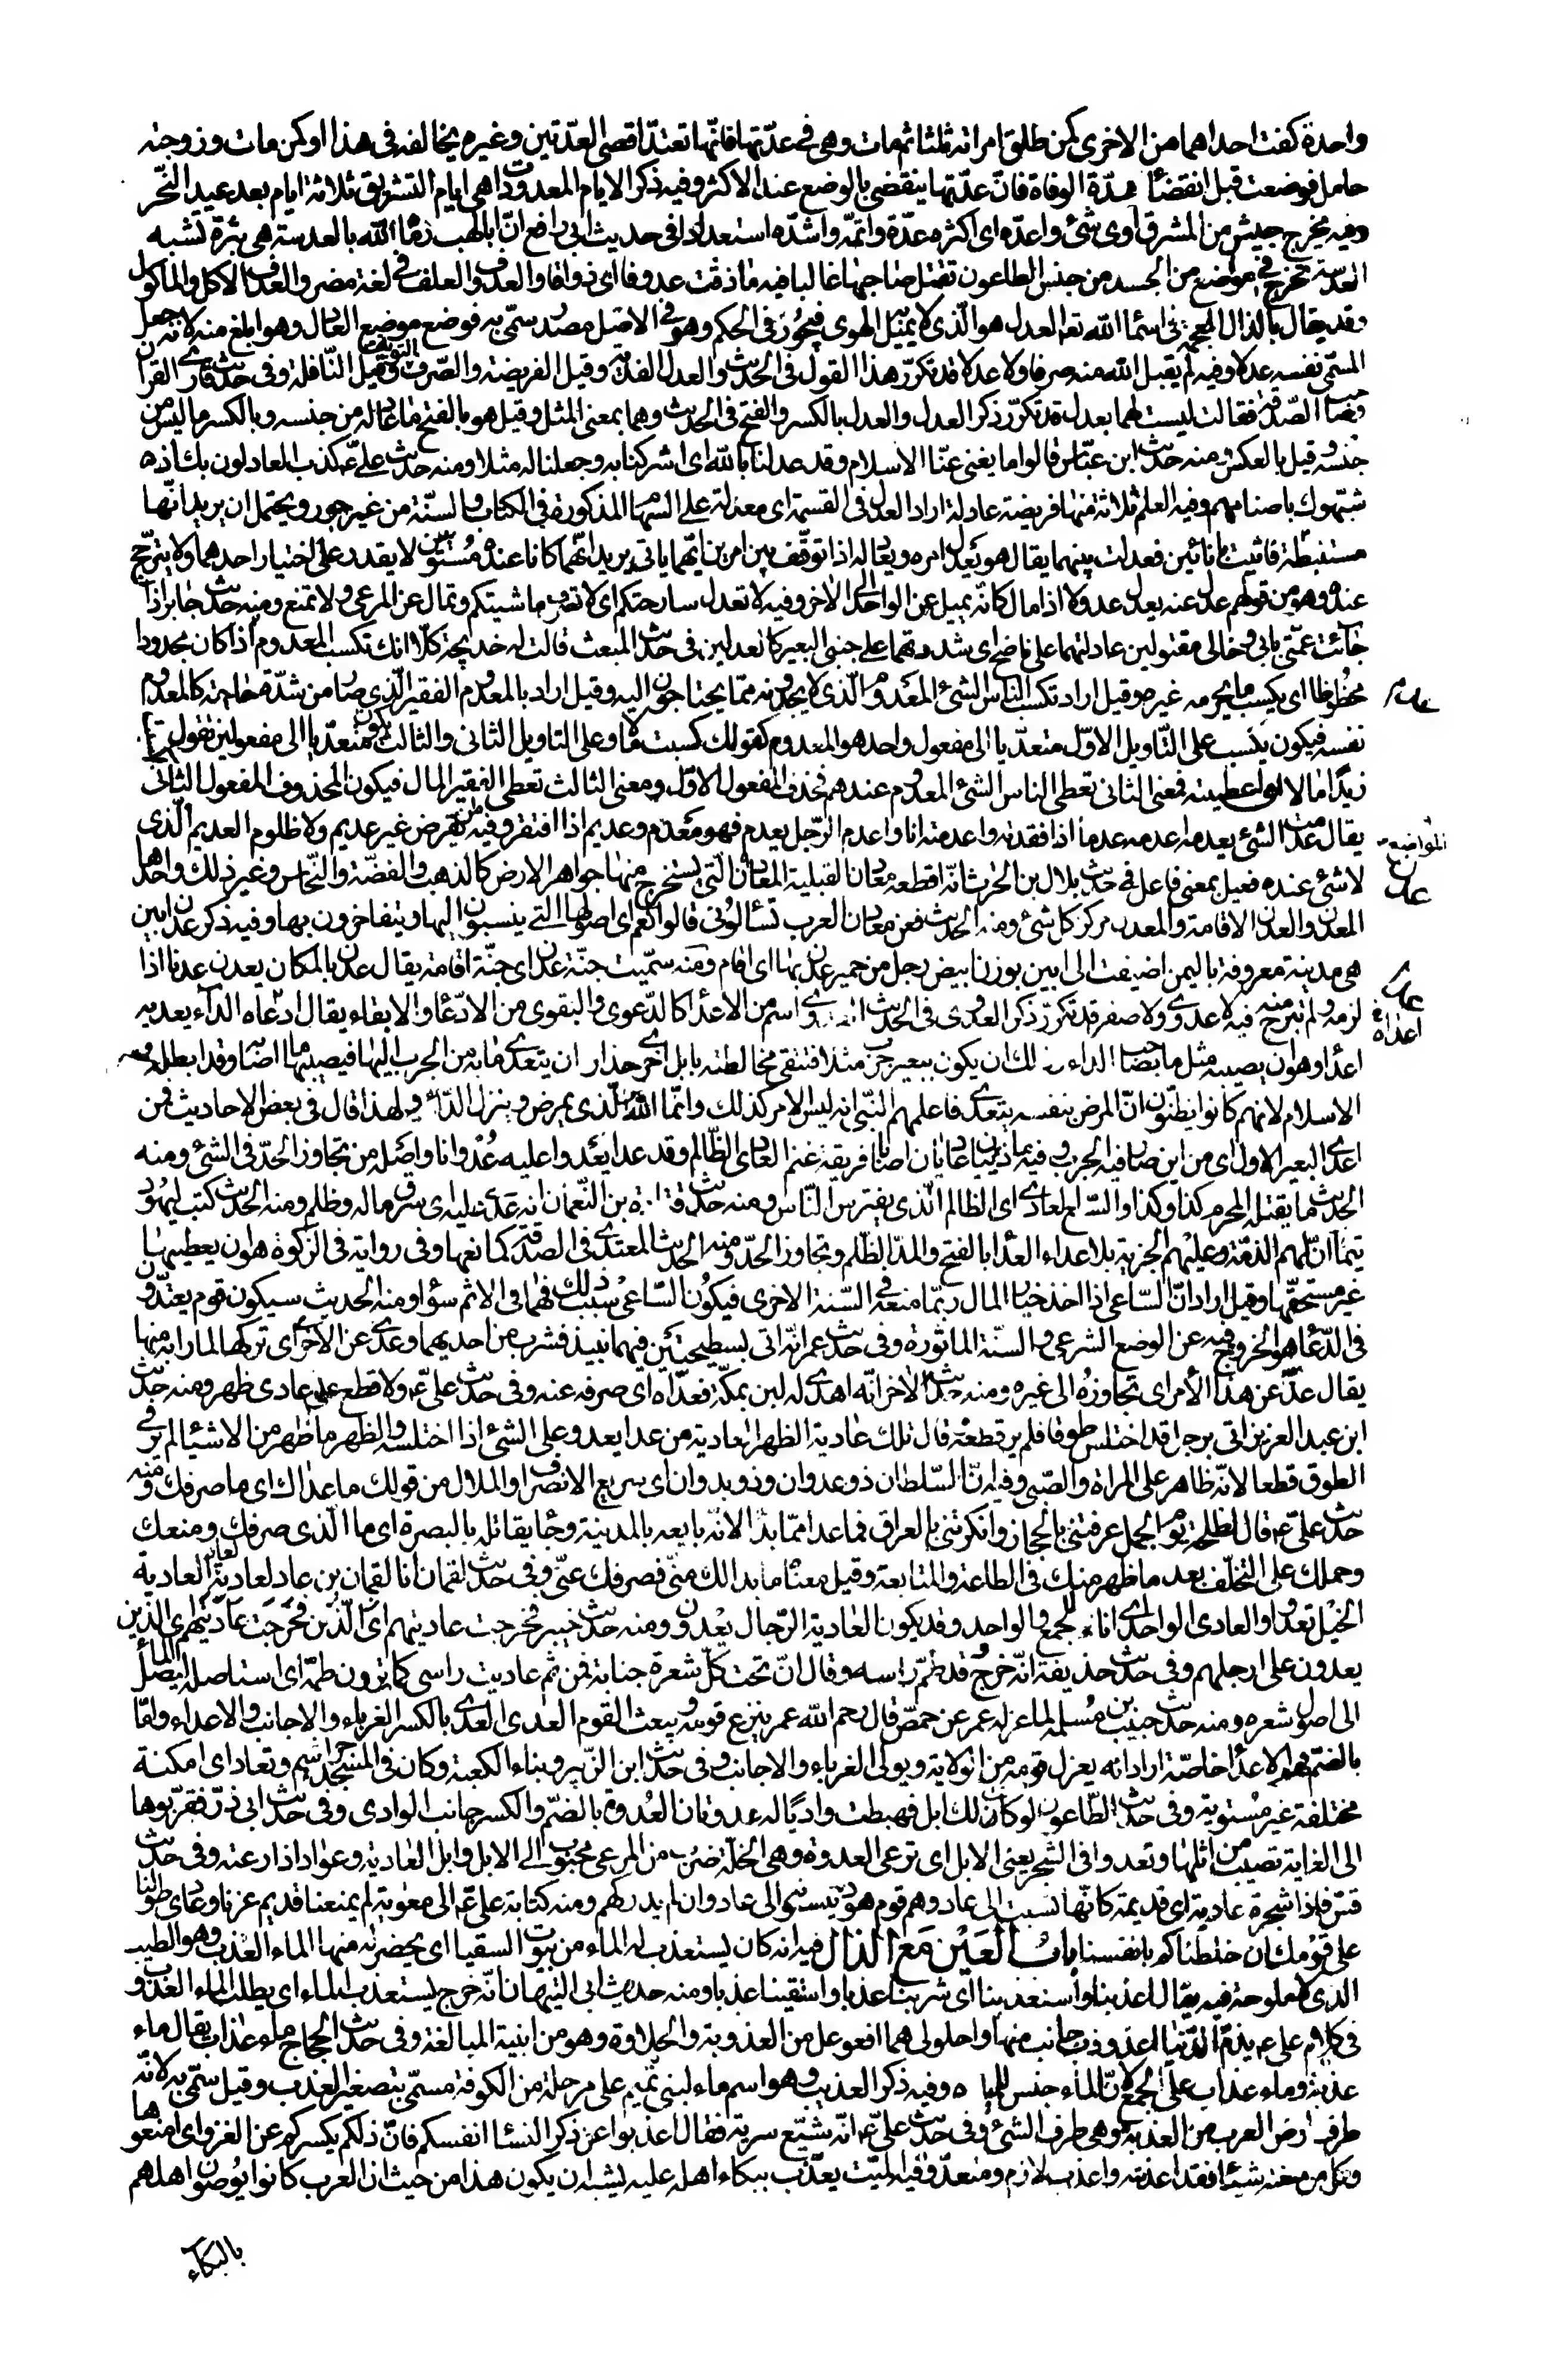 واحدة كفت احداهما من الاخرى كمن طلق امراته ثلثا ثم مات وهى فى عدّتها فانّها تعتدّ اقصى العدّتين وغيره يخالفه فى هذا او كمن مات وزوجته
حامل فوضعت قبل انقضاء مدّة الوفاة فانّ عدّتها ينقضى بالوضع عند الاكثر وفيه ذكر الايام المعدودات هى ايام التشريق ثلاثة ايام بعد عيد النحر
وفيه يخرج جيش من المشرق اوى شئ واعدّه اى اكثره عدّة واتمّه واشدّه استعدادا فى حديث ابى رافع انّ ابا لهب رماه الله بالعدسة هى بثرة تشبه
العدسة تخرج فى مواضع من الجسد من جنس الطاعون تقتل صاحبها غالبا فيه ما ذقت عدوفا اى ذواقا والعدوف العلف فى لغة مضر والعدف الاكل والماكول
وقد يقال بالذال المعجمة فى اسماء الله تعا العدل هو الّذى لا يميل به الهوى فيجور فى الحكم وهو فى الاصل مصدر سمّى به فوضع موضع العادل وهو ابلغ منه لانه جعل
المسمّى نفسه عدلا وفيه لم يقبل الله منه صرفا ولا عدلا قد تكرّر هذا القول فى الحديث والعدل الفدية وقيل الفريضة والصّرف التوبة وقيل النّافلة وفى حديث قارى القران
وصاحب الصّدقة فقالت ليست لهما بعدل قد تكرّر ذكر العدل والعدل بالكسر والفتح فى الحديث وهما بمعنى المثل وقيل هو بالفتح ما عادله من جنسه وبالكسر ما ليس من
جنسه وقيل بالعكس ومنه حديث ابن عبّاس قالوا ما يغنى عنّا الاسلام وقد عدلنا بالله اى اشركنا به وجعلنا له مثلا ومنه حديث علىّ عم كذب العادلون بك اذ
شبّهوك باصنامهم وفيه العلم ثلاثة منها فريضة عادلة اراد العدل فى القسمة اى معدلة على السهام المذكورة فى الكتاب والسنّة من غير جور ويحتمل ان يريد انّها
مستنبطة فاتيت بانائين فعدلت بينهما يقال هو يعدّل امره ويعادله اذا توقّف بين امرين ايّهما ياتى يريد انّهما كانا عنده مستويين لا يقدر على اختيار احدهما ولا يترجّح
عنده وهو من قولهم عدل عنه يعدل عدولا اذا مال كانّه يميل عن الواحد الى الاخر وفيه لا تعدل سارحتكم اى لا تصرف ماشيتكم وتمال عن المرعى ولا تمنع ومنه حديث جابر اذ
جائت عمّتى بابى وخالى مقتولين عادلتهما على ناضح اى شددتهما على جنبى البعير كالعدلين فى حديث المبعث قالت له خديجة كلّا انك تكسب المعدوم اذا كان مجدودا
محظوظا اى يكسب ما يحرمه غيره وقيل ارادت تكسب النّاس الشئ المعدوم الّذى لا يجدونه ممّا يحتاجون اليه وقيل اراد بالمعدوم الفقير الّذى صار من شدّة حاجته كالمعدوم
نفسه فيكون يكسب على التّاويل الاوّل متعدّيا الى مفعول واحد هو المعدوم كقولك كسبت مالا وعلى التاويل الثانى والثالث يكون متعدّيا الى مفعولين تقول
زيدا مالا اى اعطيته فمعنى الثانى تعطى الناس الشئ المعدوم عندهم فحذف المفعول الاوّل ومعنى الثالث تعطى الفقير المال فيكون المحذوف المفعول الثانى
يقال عدمت الشئ يعدمه عدما اذا فقدته واعدمته انا واعدم الرّجل يعدم فهو معدم وعديم اذا افتقر وفيه من يقرض غير عديم ولا ظلوم العديم الّذى
لا شئ عنده فعيل بمعنى فاعل فى حديث بلال بن الحرث انّه اقطعه معادن القبلية المعادن الّتى يستخرج منها جواهر الارض كالذهب والفضّة والنّحاس وغير ذلك واحدها
المعدن والعدن الاقامة والمعدن مركز كل شئ ومنه الحديث فعن معادن العرب تسألونى قالوا نعم اى اصولها التى ينسبون اليها ويتفاخرون بها وفيه ذكر عدن ابين
هى مدينة معروفة باليمن اضيفت الى ابين بوزن ابيض رجل من حمير عدن بها اى اقام ومنه سمّيت جنّة عدن اى جنّة اقامة يقال عدن بالمكان يعدن عدنا اذا
لزمه ولم يبرح منه فيه لا عدوى ولا صفر قد تكرّر ذكر العدوى فى الحديث العدوى اسم من الاعداء كالدّعوى والبقوى من الادّعاء والابقاء يقال اعداه الداء يعديه
اعداء وهو ان يصيبه مثل ما بصاحب الداء وذلك ان يكون ببعير جرب مثلا فتتقى مخالطته بابل اخرى حذار ان يتعدى ما به من الجرب اليها فيصيبها ما اصابه وقد ابطله
الاسلام لانهم كانوا يظنّون انّ المرض بنفسه يتعدى فاعلمهم النّبى انه ليس الامر كذلك وانّما الله الّذى يمرض وينزل الدّاء ولهذا قال فى بعض الاحاديث فمن
اعدى البعير الاول اى من اين صار فيه الجرب وفيه ما ذئبان عاديان اصابا فريقة غنم العادى الظّالم وقد عدا يعدو عليه عدوانا واصله من تجاوز الحدّ فى الشئ ومنه
الحديث ما يقتله المحرم كذا وكذا والسّبع العادى اى الظالم الّذى يفترس النّاس ومنه حديث قتادة بن النّعمان انه عدى عليه اى سرق ماله وظلم ومنه الحديث كتب ليهود
تيماء انّ لهم الذمّة وعليهم الجزية بلا عداء العداء بالفتح والمدّ الظلم وتجاوز الحدّ ومنه الحديث المعتدى فى الصدقة كمانعها وفى رواية فى الزكوة هو ان يعطيها
غير مستحقّها وقيل اراد انّ السّاعى اذا اخذ خيار المال ربّما منعه فى السّنة الاخرى فيكون السّاعى سبب ذلك فهما فى الاثم سواء ومنه الحديث سيكون قوم يعتدون
فى الدّعاء هو الخروج فيه عن الوضع الشرعى والسنّة الماثورة وفى حديث عمر انّه اتى بسطيحتين فيهما نبيذ فشرب من احديهما وعدى عن الاخرى اى تركها لما رابه منها
يقال عدّ عن هذا الامر اى تجاوزه الى غيره ومنه حديثه الاخر انّه اهدى له لبن بمكّة فعدّاه اى صرفه عنه وفى حديث علىّ عم ولا قطع على عادى ظهر ومنه حديث
ابن عبد العزيز اتى برجل قد اختلس طوقا فلم ير قطعه قال تلك عادية الظهر العادية من عدا يعدو على الشئ اذا اختلسه والظهر ما ظهر من الاشياء لم ير فى
الطوق قطعا لانّه ظاهر على المراة والصّبى وفيه انّ السّلطان ذو عدوان وذو بدوان اى سريع الانصراف والملال من قولك ما عداك اى ما صرفك ومنه
حديث علىّ عم قال لطلحة يوم الجمل عرفتنى بالحجاز وانكرتنى بالعراق فما عدا ممّا بدا لانّه بايعه بالمدينة وجاء يقاتله بالبصرة اى ما الّذى صرفك ومنعك
وحملك على التخلّف بعد ما ظهر منك فى الطاعة والمتابعة وقيل معناه ما بدا لك منّى فصرفك عنّى وفى حديث لقمان انا لقمان بن عاد لعادية لعاد العادية
الخيل تعدو والعادى الواحد اى انا للجمع والواحد وقد يكون العادية الرّجال يعدون ومنه حديث خيبر فخرجت عاديتهم اى الّذين
يعدون على ارجلهم وفى حديث حذيفة انّه خرج وقد طمّ راسه وقال انّ تحت كلّ شعرة جنابة فمن ثم عاديت راسى كما ترون طمّه اى استاصله ليصل الماء
الى اصول شعره ومنه حديث حبيب بن مسلمة لما عزله عمر عن حمص قال رحم الله عمر ينزع قومه ويبعث القوم العدى العدى بالكسر الغرباء والاجانب والاعداء وامّا
بالضم فهم الاعداء خاصّة اراد انه يعزل قومه من الولاية ويولى الغرباء والاجانب وفى حديث ابن الزّبير وبناء الكعبة وكان فى المسجد جراثيم وتعاد اى امكنة
مختلفة غير مستوية وفى حديث الطّاعون لو كانت لك ابل فهبطت واديا له عدوتان العدوة بالضمّ والكسر جانب الوادى وفى حديث ابى ذرّ فقرّبوها
الى الغابة تصيب من اثلها وتعدو فى الشّجر يعنى الابل اى ترعى العدوة وهى الخلّة ضرب من المرعى محبوب الى الابل وابل عادية وعواد اذا رعته وفى حديث
قسّ فاذا شجرة عادية اى قديمة كانّها نسبت الى عاد وهم قوم هود ينسبون الى عاد وان لم يدركهم ومنه كتابة علىّ عم الى معوية لم يمنعنا قديم عزنا وعادى طولنا
على قومك ان خلطناكم بانفسنا باب العين مع الذال فيه انه كان يستعذب له الماء من بيوت السقيا اى يحضر له منها الماء العذب وهو الطيب
الذى لا ملوحة فيه يقال اعذبنا واستعذبنا اى شربنا عذبا واستقينا عذبا ومنه حديث ابى التيهان انّه خرج يستعذب الماء اى يطلب الماء العذب و
فى كلام على عم يذمّ الدّنيا اعذوذب جانب منها واحلولى هما افعوعل من العذوبة والحلاوة وهو من ابنية المبالغة وفى حديث الحجاج ماء عذاب يقال ماء
عذبة وماء عذاب على الجمع لانّ الماء جنس للماءة وفيه ذكر العذيب وهو اسم ماء لبنى تميم على مرحلة من الكوفة مسمّى بتصغير العذب وقيل سمّى به لانّه
طرف ارض العرب من العذبة وهى طرف الشئ وفى حديث علىّ عم انّه شيّع سرية فقال اعذبوا عن ذكر النساء انفسكم فانّ ذلكم يكسركم عن الغزو اى امنعوها
وكل من منعته شيئا فقد اعذبته واعذب لازم ومتعدّ وفيه الميّت يعذّب ببكاء اهله عليه يشبه ان يكون هذا من حيث ان العرب كانوا يوصون اهلهم
عدم
عدن
عدا
بالبكاء